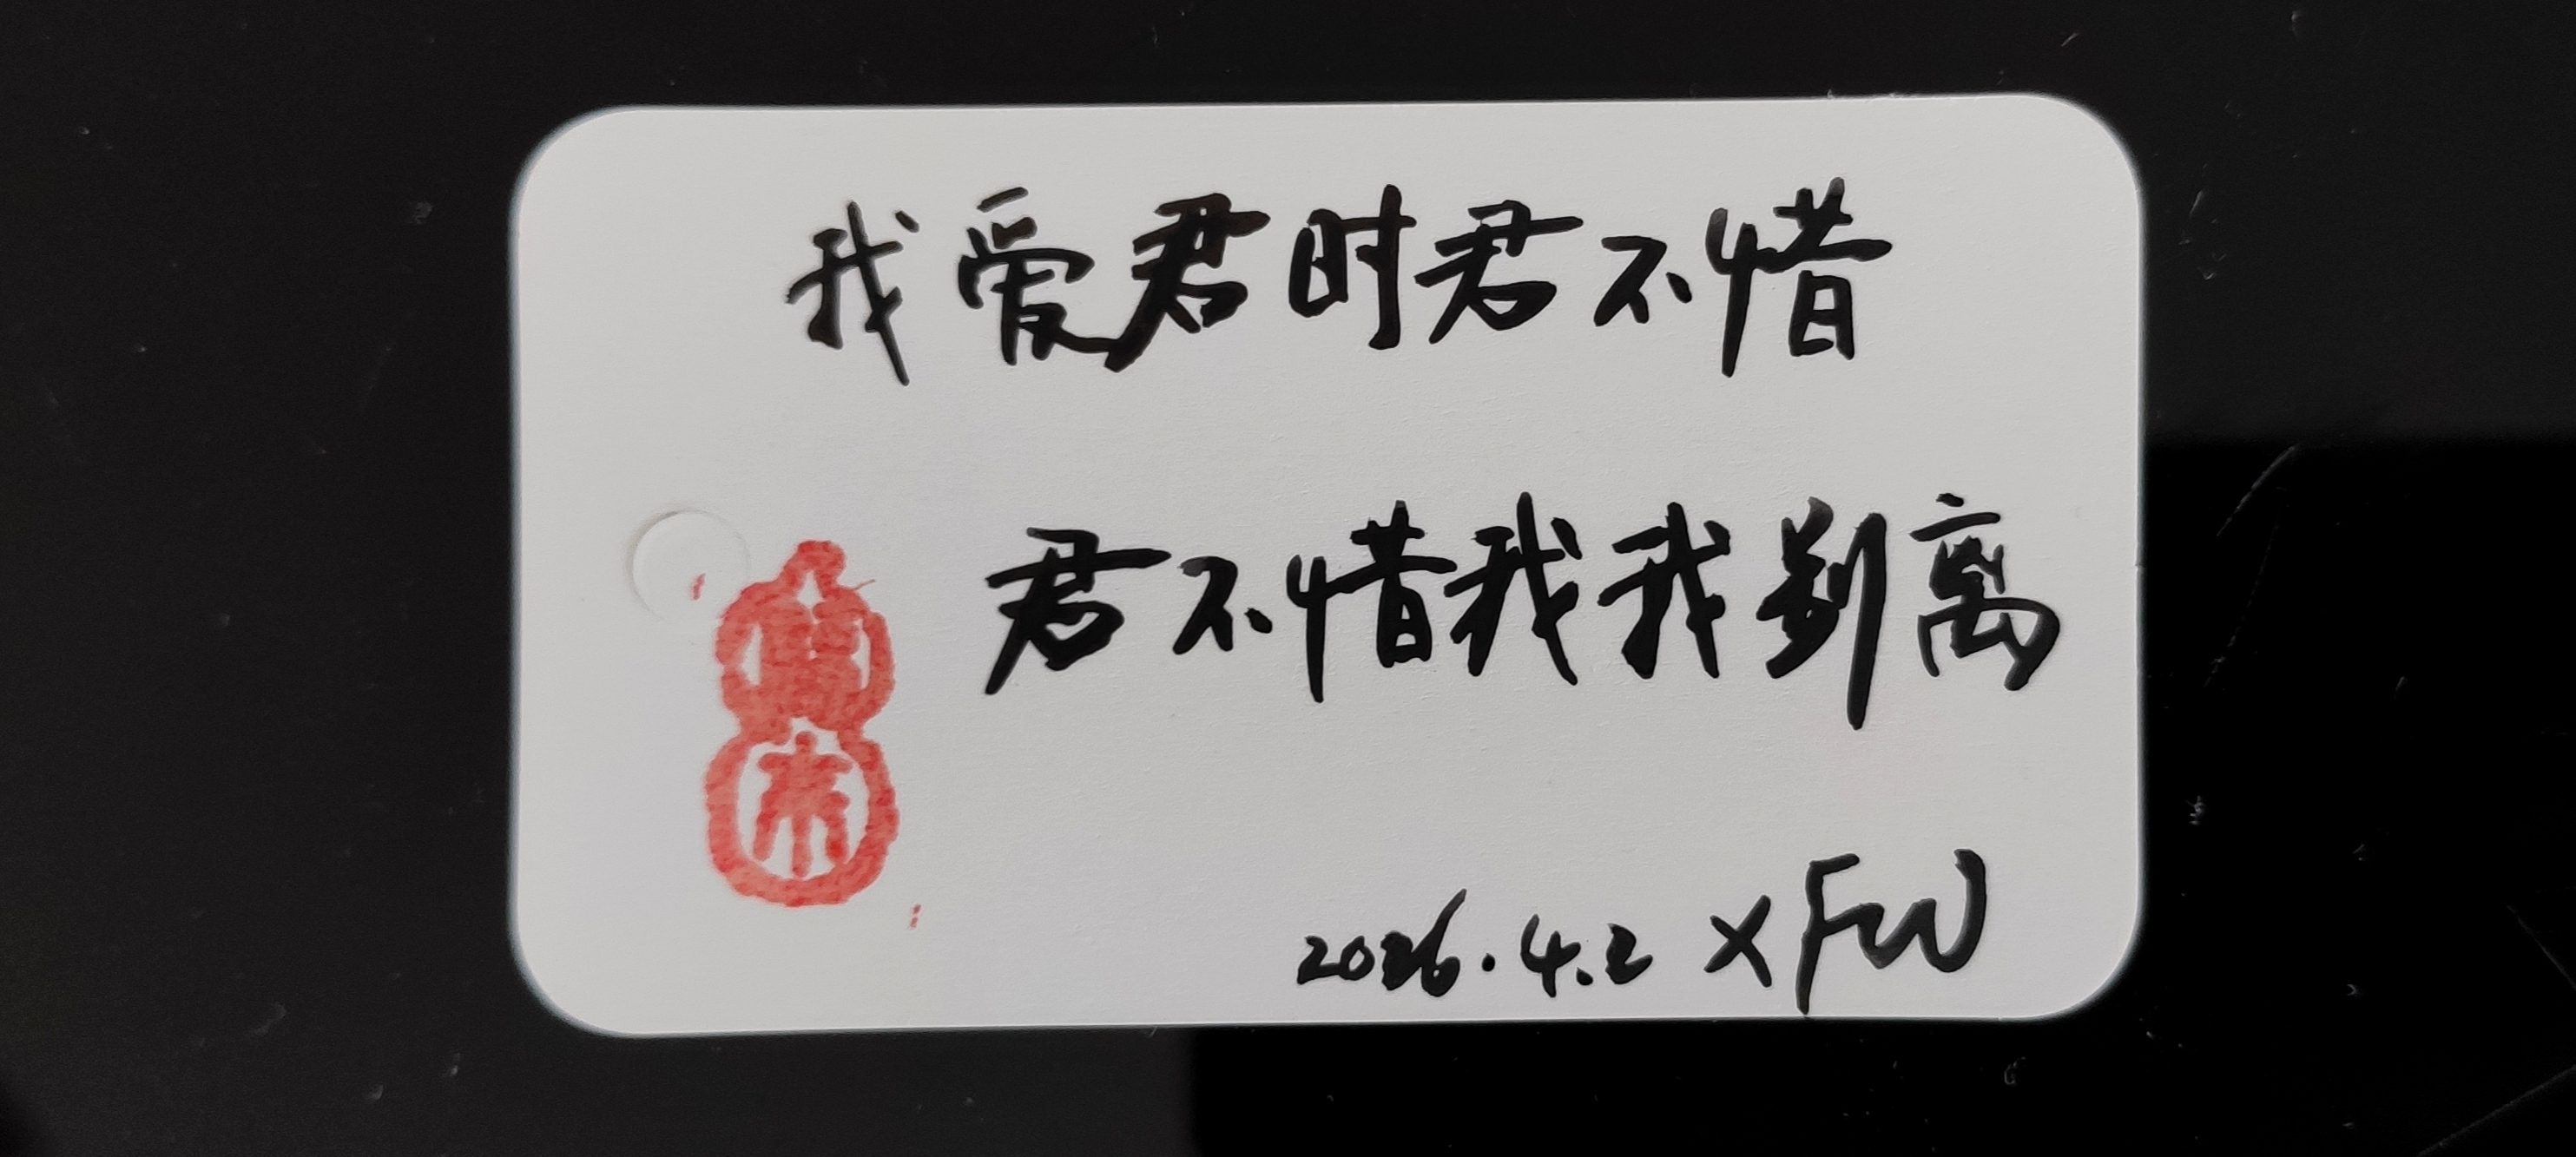 我爱君时君不惜
君不惜我我别离
2026.4.2 XFW